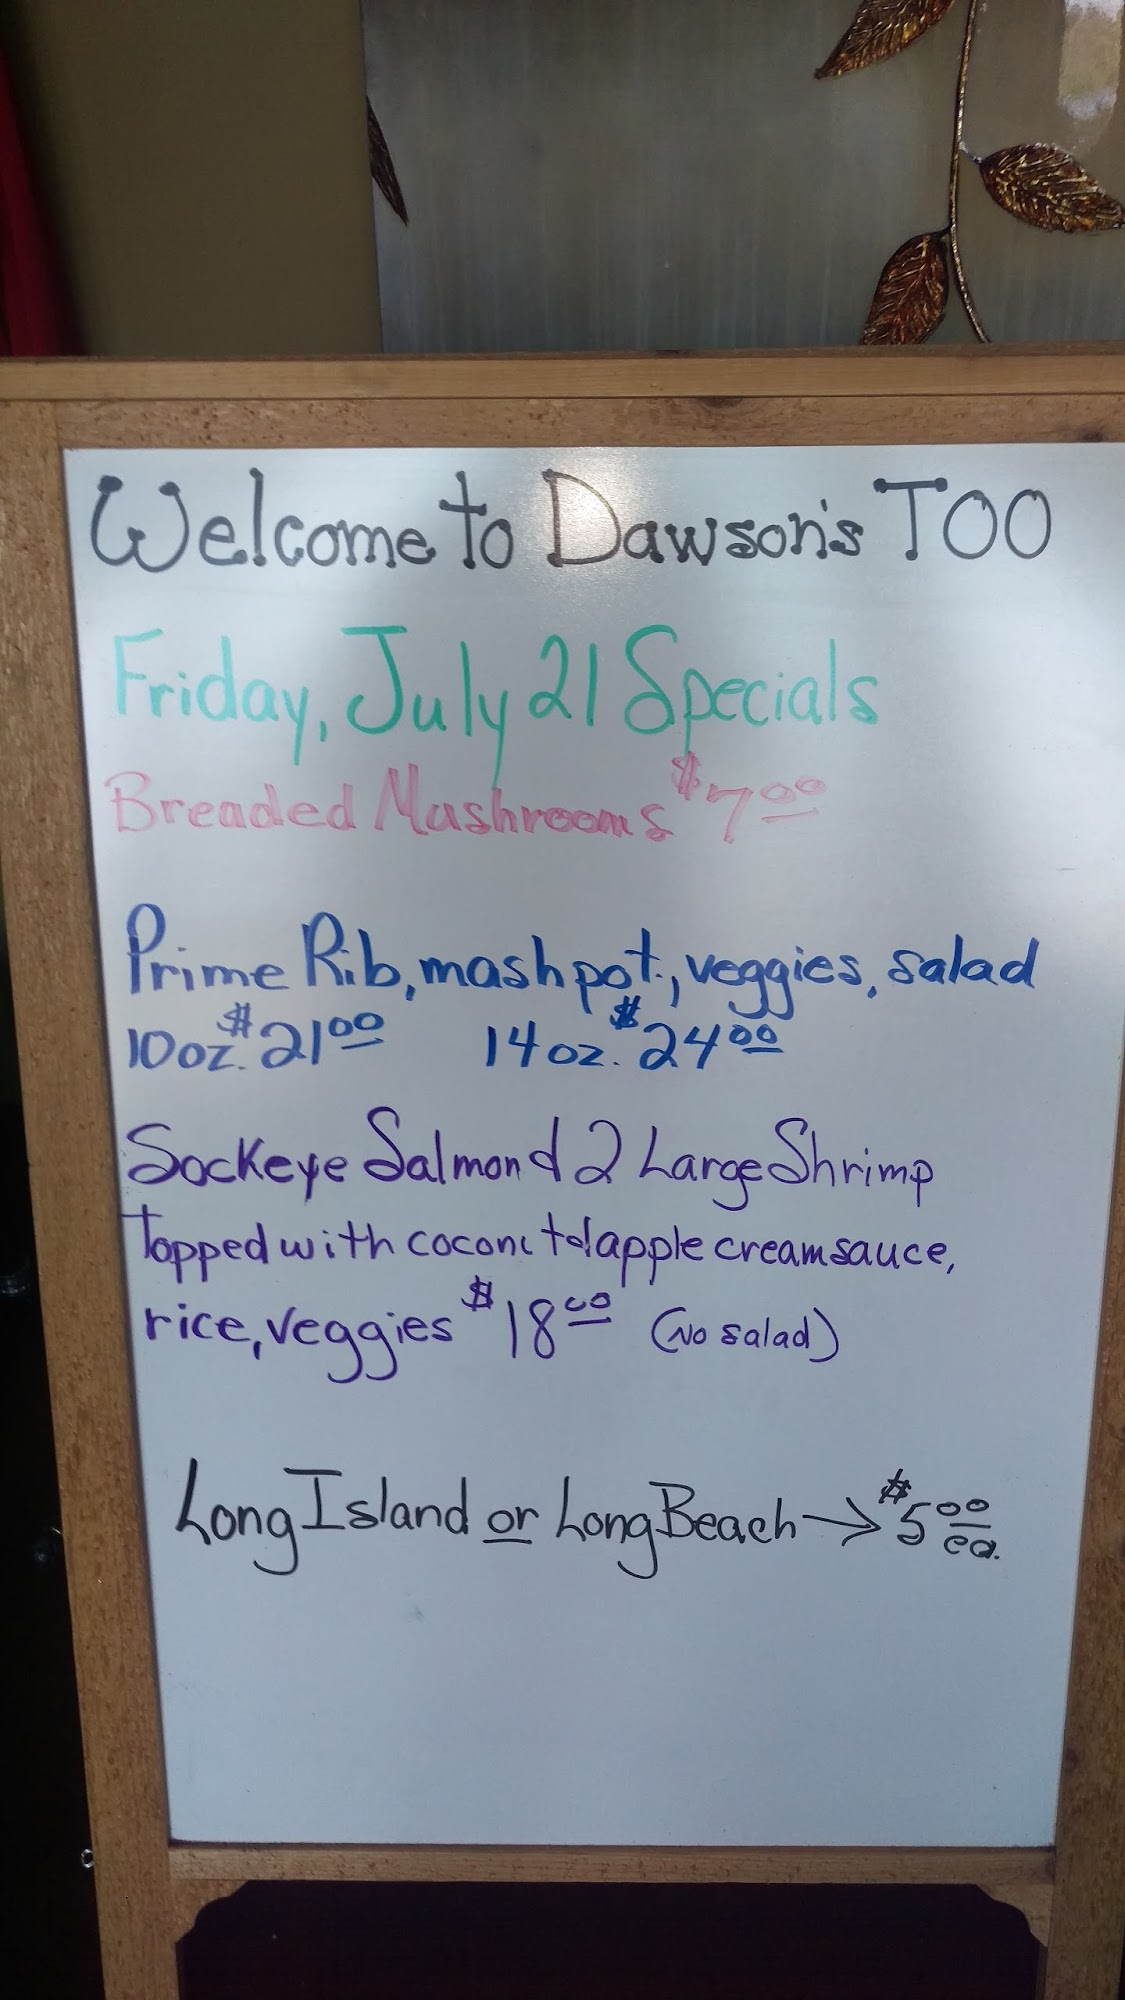 Welcome to Dawson's TOO
Friday, July 21 Specials
Breaded Mushrooms $7.00
Prime Rib, mash pot., veggies, salad
10oz. $21.00 14oz. $24.00
Sockeye Salmon & 2 Large Shrimp
topped with apple cream sauce,
rice, veggies $18.00 (no salad)
Long Island or Long Beach → $5.00 ea.